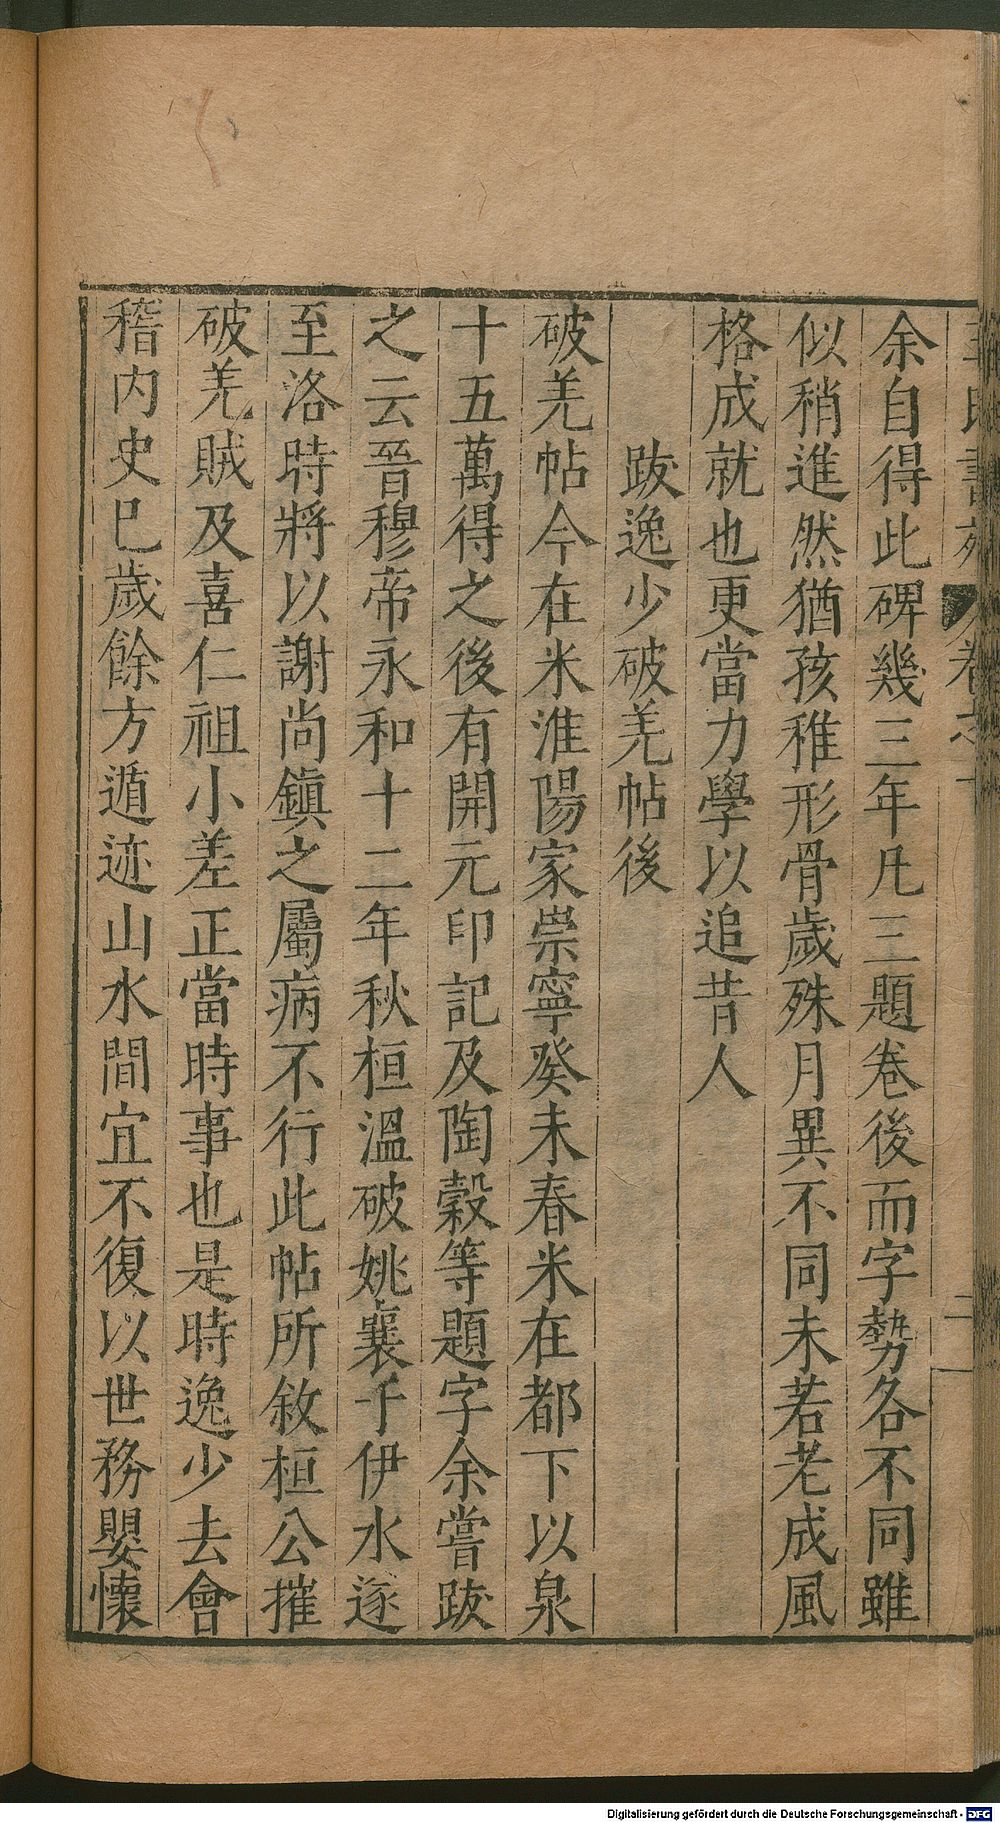 余自得此碑幾三年凡三題卷後而字勢各不同雖
似稍進然猶孩稚形骨歲殊月異不同未若老成風
格成就也更當力學以追昔人
跋逸少破羌帖後
破羌帖今在米淮陽家崇寧癸未春米在都下以泉
十五萬得之後有開元印記及陶穀等題字余嘗跋
之云晉穆帝永和十二年秋桓溫破姚襄于伊水遂
至洛時將以謝尚鎮之屬病不行此帖所敘桓公摧
破羌賊及喜仁祖小差正當時事也是時逸少去會
稽內史已歲餘方遁迹山水間宜不復以世務嬰懷
Digitalisierung gefördert durch die Deutsche Forschungsgemeinschaft - DFG